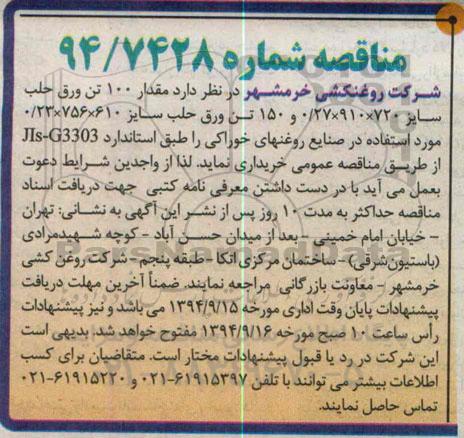 مناقصه شماره ۹۴/۷۴۲۸
شرکت روغنکشی خرمشهر در نظر دارد مقدار ۱۰۰ تن ورق حلب
سایز ۷۲۰×۹۱۰×۰/۲۷ و ۱۵۰ تن ورق حلب سایز ۶۱۰×۷۵۶×۰/۲۳
مورد استفاده در صنایع روغنهای خوراکی را طبق استاندارد JIs-G3303
از طریق مناقصه عمومی خریداری نماید. لذا از واجدین شرایط دعوت
بعمل می آید با در دست داشتن معرفی نامه کتبی جهت دریافت اسناد
مناقصه حداکثر به مدت ۱۰ روز پس از نشر این آگهی به نشانی: تهران
- خیابان امام خمینی - بعد از میدان حسن آباد - کوچه شهیدمرادی
(باستیون‌شرقی) - ساختمان مرکزی اتکا - طبقه پنجم - شرکت روغن کشی
خرمشهر - معاونت بازرگانی مراجعه نمایند. ضمناً آخرین مهلت دریافت
پیشنهادات پایان وقت اداری مورخه ۱۳۹۴/۹/۱۵ می باشد و نیز پیشنهادات
رأس ساعت ۱۰ صبح مورخه ۱۳۹۴/۹/۱۶ مفتوح خواهد شد. بدیهی است
این شرکت در رد یا قبول پیشنهادات مختار است. متقاضیان برای کسب
اطلاعات بیشتر می توانند با تلفن ۶۱۹۱۵۳۹۷-۰۲۱ و ۶۱۹۱۵۲۲۰-۰۲۱
تماس حاصل نمایند.